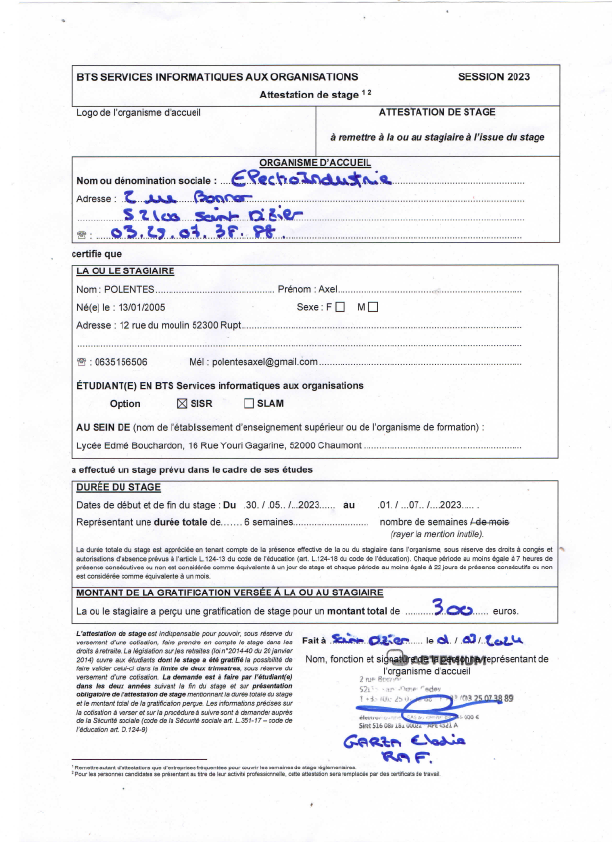 BTS SERVICES INFORMATIQUES AUX ORGANISATIONS SESSION 2023
Attestation de stage 1 2
Logo de l'organisme d'accueil
ATTESTATION DE STAGE
à remettre à la ou au stagiaire à l'issue du stage
ORGANISME D'ACCUEIL
Nom ou dénomination sociale : ElectroIndustrie
Adresse : 2 rue
52100 Saint Dizier
☏ : 03.29.07.38.
certifie que
LA OU LE STAGIAIRE
Nom : POLENTES Prénom : Axel
Né(e) le : 13/01/2005 Sexe : F ☐ M ☐
Adresse : 12 rue du moulin 52300 Rupt
☏ : 0635156506 Mél : polentesaxel@gmail.com
ÉTUDIANT(E) EN BTS Services informatiques aux organisations
Option ☒ SISR ☐ SLAM
AU SEIN DE (nom de l'établissement d'enseignement supérieur ou de l'organisme de formation) :
Lycée Edmé Bouchardon, 16 Rue Youri Gagarine, 52000 Chaumont
a effectué un stage prévu dans le cadre de ses études
DURÉE DU STAGE
Dates de début et de fin du stage : Du .30. / .05. ./...2023...... au .01. / ...07. ./....2023..... .
Représentant une durée totale de....... 6 semaines nombre de semaines / de mois
(rayer la mention inutile).
La durée totale du stage est appréciée en tenant compte de la présence effective de la ou du stagiaire dans l'organisme, sous réserve des droits à congés et
autorisations d'absence prévus à l'article L.124-13 du code de l'éducation (art. L.124-18 du code de l'éducation). Chaque période au moins égale à 7 heures de
présence consécutives ou non est considérée comme équivalente à un jour de stage et chaque période au moins égale à 22 jours de présence consécutifs ou non
est considérée comme équivalente à un mois.
MONTANT DE LA GRATIFICATION VERSÉE À LA OU AU STAGIAIRE
La ou le stagiaire a perçu une gratification de stage pour un montant total de 300 euros.
L'attestation de stage est indispensable pour pouvoir, sous réserve du
versement d'une cotisation, faire prendre en compte le stage dans les
droits à retraite. La législation sur les retraites (loi n°2014-40 du 20 janvier
2014) ouvre aux étudiants dont le stage a été gratifié la possibilité de
faire valider celui-ci dans la limite de deux trimestres, sous réserve du
versement d'une cotisation. La demande est à faire par l'étudiant(e)
dans les deux années suivant la fin du stage et sur présentation
obligatoire de l'attestation de stage mentionnant la durée totale du stage
et le montant total de la gratification perçue. Les informations précises sur
la cotisation à verser et sur la procédure à suivre sont à demander auprès
de la Sécurité sociale (code de la Sécurité sociale art. L.351-17 – code de
l'éducation art. D.124-9)
Fait à Saint Dizier le 01 / 07 / 2024
Nom, fonction et signature de la personne représentant de
l'organisme d'accueil
2 rue
03 25 07 38 89
GARZA Elodie
RAF.
1 Remettre autant d'attestations que d'entreprises fréquentées pour couvrir les semaines de stage réglementaires.
2 Pour les personnes candidates se présentant au titre de leur activité professionnelle, cette attestation sera remplacée par des certificats de travail.